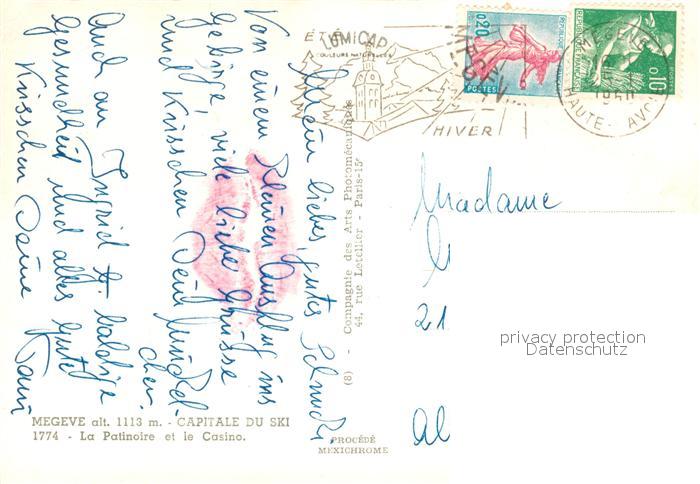 Mein liebes, gutes
Von einem kleinen Ausflug ins
Gebirge, viele liebe Grüsse
und Küsschen Dein
Und an Ingrid baldige
Gesundheit und alles gute
Küsschen Deine
ÉTÉ
LUMICAP
COULEURS NATURELLES
HIVER
0,20
POSTES
REPUBLIQUE FRANÇAISE
0,10
MEGEVE
HAUTE-SAVOIE
Madame
21
al
privacy protection
Datenschutz
(8) - Compagnie des Arts Photomécaniques
44, rue Letellier - Paris-15e
MEGEVE alt. 1113 m. - CAPITALE DU SKI
1774 - La Patinoire et le Casino.
PROCÉDÉ
MEXICHROME